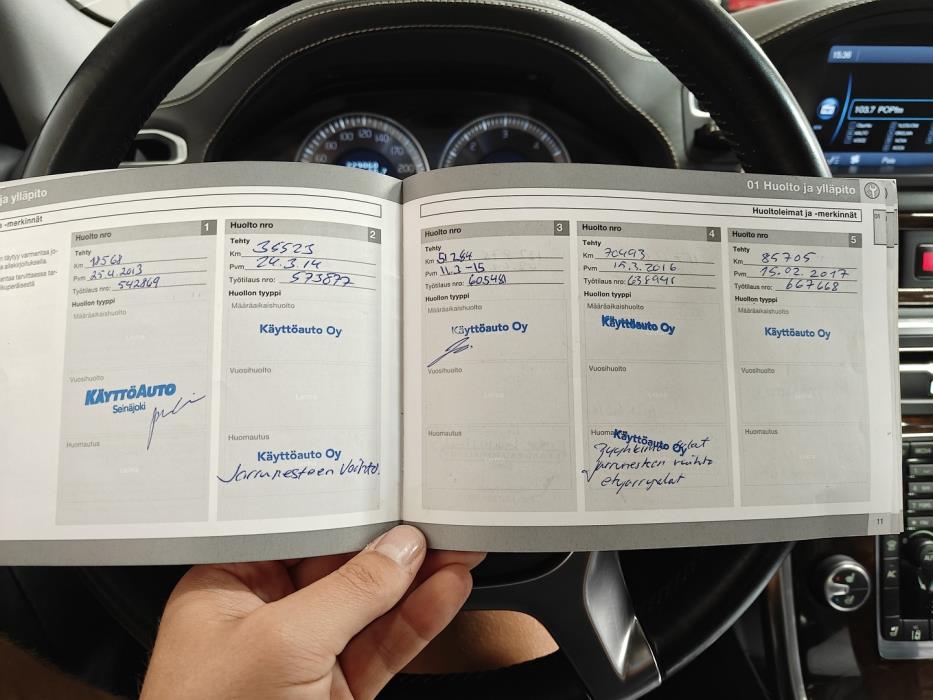 15:36
103.7 POPfm
60 80 100 120 140 170 200
1 2 3 4
ja ylläpito
01 Huolto ja ylläpito
-merkinnät
Huoltoleimat ja -merkinnät
01
Huolto nro 1
Tehty
Km 18568
Pvm 25.4.2013
Työtilaus nro: 542869
Huollon tyyppi
Määräaikaishuolto
Vuosihuolto
KÄYTTÖAUTO
Seinäjoki
Huomautus
Huolto nro 2
Tehty
Km 36523
Pvm 24.3.14
Työtilaus nro: 573877
Huollon tyyppi
Määräaikaishuolto
Käyttöauto Oy
Vuosihuolto
Huomautus
Käyttöauto Oy
Jarrunesteen Vaihto.
Huolto nro 3
Tehty
Km 51264
Pvm 11.3-15
Työtilaus nro: 605481
Huollon tyyppi
Määräaikaishuolto
Käyttöauto Oy
Vuosihuolto
Huomautus
Huolto nro 4
Tehty
Km 70493
Pvm 15.3.2016
Työtilaus nro:
Huollon tyyppi
Määräaikaishuolto
Käyttöauto Oy
Vuosihuolto
Käyttöauto Oy
jarrunesteen vaihto
etujarrupalat
Huolto nro 5
Tehty
Km 85705
Pvm 15.02.2017
Työtilaus nro: 667668
Huollon tyyppi
Määräaikaishuolto
Käyttöauto Oy
Vuosihuolto
Huomautus
11
AC